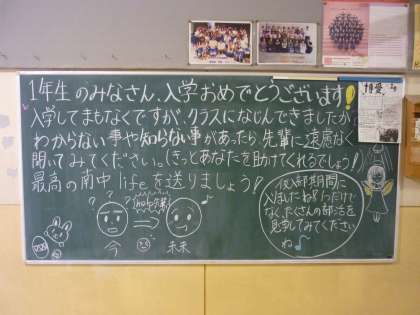 1年生のみなさん、入学おめでとうございます!
入学してまもなくですが、クラスになじんできましたか?
わからない事や知らない事があったら、先輩に遠慮なく
聞いてみてください。(きっとあなたを助けてくれるでしょう!
最高の南中 lifeを送りましょう!
今
未来
仮入部期間に
入りましたね!1つだけで
なく、たくさんの部活を
見学してみてください
ね♪